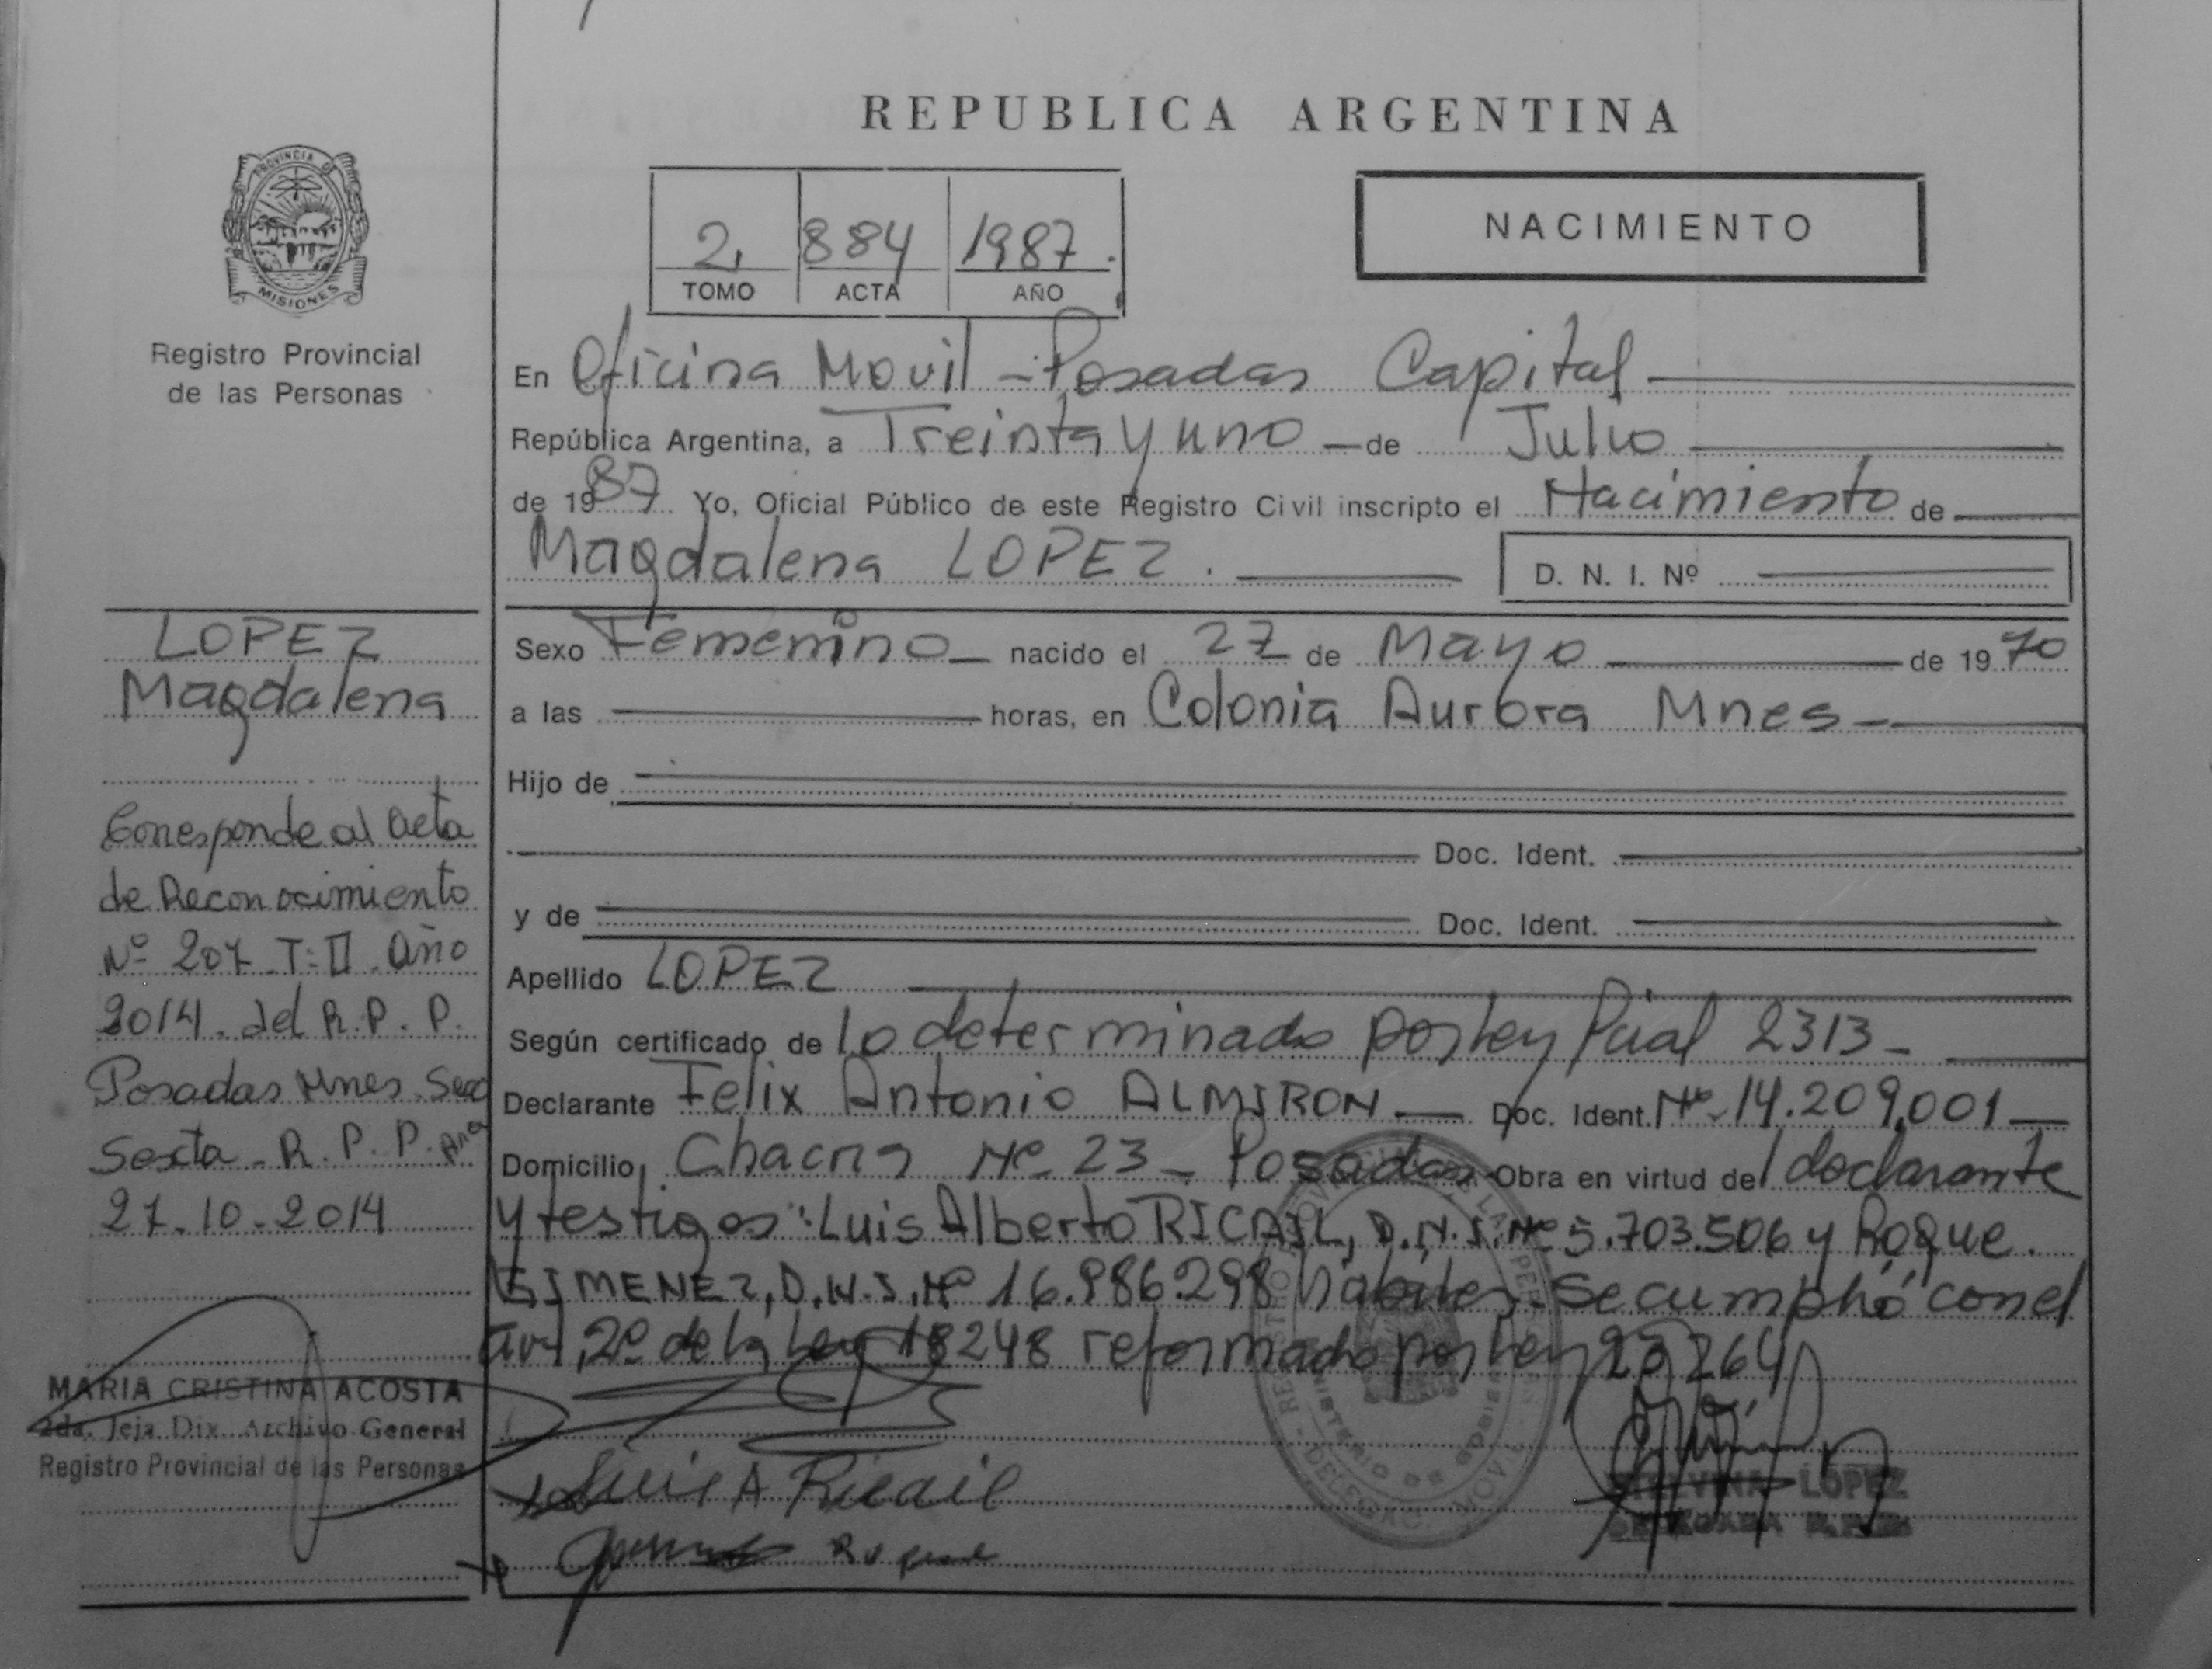 REPUBLICA ARGENTINA
PROVINCIA DE
MISIONES
Registro Provincial
de las Personas
2 884 1987.
TOMO ACTA AÑO
NACIMIENTO
En Oficina Movil - Posadas Capital
República Argentina, a Treinta y uno — de Julio
de 1987 Yo, Oficial Público de este Registro Civil inscripto el Nacimiento de
Magdalena LOPEZ.
D. N. I. Nº
LOPEZ
Magdalena
Corresponde al acta
de Reconocimiento
Nº 207 T: II Año
2014. del R. P. P.
Posadas Mnes. Secc
Sexta - R. P. P.
27-10-2014
MARIA CRISTINA ACOSTA
2da. Jefa Dix. Archivo General
Registro Provincial de las Personas
Sexo Femenino nacido el 27 de Mayo de 1970
a las horas, en Colonia Aurora Mnes -
Hijo de
Doc. Ident.
y de Doc. Ident.
Apellido LOPEZ
Según certificado de lo determinado por Ley Pcial 2313 -
Declarante Felix Antonio ALMIRON — Doc. Ident. Nº 14.209.001 —
Domicilio Chacra Nº 23 - Posadas Obra en virtud del declarante
y testigos: Luis Alberto RICAIL, D.N.I. Nº 5.703.506 y Roque
GIMENEZ, D.N.I. Nº 16.986.298 hábiles. Se cumplió con el
art. 2º de la Ley 18248 reformado por Ley 23264
Luis A Ricail
Roque
LOPEZ